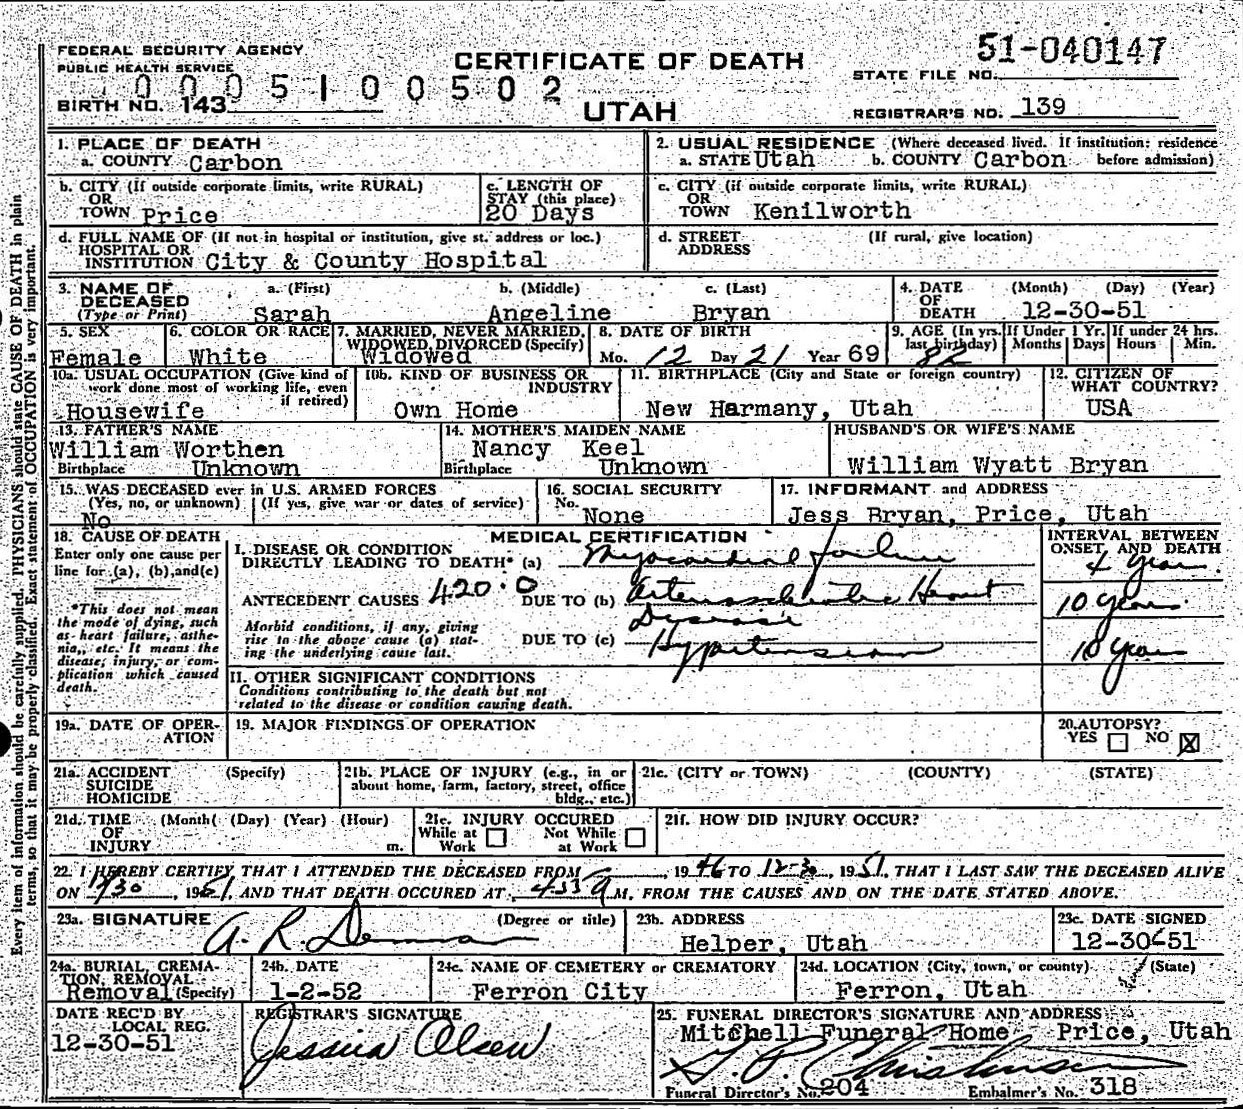 FEDERAL SECURITY AGENCY
PUBLIC HEALTH SERVICE
0005100502
BIRTH NO. 143
CERTIFICATE OF DEATH
UTAH
51-040147
STATE FILE NO.
REGISTRAR'S NO. 139
Every item of information should be carefully supplied. PHYSICIANS should state CAUSE OF DEATH in plain
terms, so that it may be properly classified. Exact statement of OCCUPATION is very important.
1. PLACE OF DEATH
a. COUNTY Carbon
2. USUAL RESIDENCE (Where deceased lived. If institution: residence
a. STATE Utah b. COUNTY Carbon before admission)
b. CITY (If outside corporate limits, write RURAL)
OR
TOWN Price
c. LENGTH OF
STAY (this place)
20 Days
c. CITY (if outside corporate limits, write RURAL)
OR
TOWN Kenilworth
d. FULL NAME OF (If not in hospital or institution, give st. address or loc.)
HOSPITAL OR
INSTITUTION City & County Hospital
d. STREET (If rural, give location)
ADDRESS
3. NAME OF a. (First) b. (Middle) c. (Last)
DECEASED
(Type or Print) Sarah Angeline Bryan
4. DATE (Month) (Day) (Year)
OF
DEATH 12-30-51
5. SEX
Female
6. COLOR OR RACE
White
7. MARRIED, NEVER MARRIED,
WIDOWED, DIVORCED (Specify)
Widowed
8. DATE OF BIRTH
Mo. 12 Day 21 Year 69
9. AGE (In yrs.
last birthday)
82
If Under 1 Yr.
Months Days
If under 24 hrs.
Hours Min.
10a. USUAL OCCUPATION (Give kind of
work done most of working life, even
if retired)
Housewife
10b. KIND OF BUSINESS OR
INDUSTRY
Own Home
11. BIRTHPLACE (City and State or foreign country)
New Harmany, Utah
12. CITIZEN OF
WHAT COUNTRY?
USA
13. FATHER'S NAME
William Worthen
Birthplace Unknown
14. MOTHER'S MAIDEN NAME
Nancy Keel
Birthplace Unknown
HUSBAND'S OR WIFE'S NAME
William Wyatt Bryan
15. WAS DECEASED ever in U.S. ARMED FORCES
(Yes, no, or unknown) (If yes, give war or dates of service)
No
16. SOCIAL SECURITY
No.
None
17. INFORMANT and ADDRESS
Jess Bryan, Price, Utah
18. CAUSE OF DEATH
Enter only one cause per
line for (a), (b), and (c)
*This does not mean
the mode of dying, such
as heart failure, asthe-
nia, etc. It means the
disease, injury, or com-
plication which caused
death.
MEDICAL CERTIFICATION
I. DISEASE OR CONDITION
DIRECTLY LEADING TO DEATH* (a) Myocardial failure
ANTECEDENT CAUSES 420.0 DUE TO (b) Arteriosclerotic Heart
Disease
Morbid conditions, if any, giving
rise to the above cause (a) stat-
ing the underlying cause last.
DUE TO (c) Hypertension
INTERVAL BETWEEN
ONSET AND DEATH
4 years
10 years
10 years
II. OTHER SIGNIFICANT CONDITIONS
Conditions contributing to the death but not
related to the disease or condition causing death.
19a. DATE OF OPER-
ATION
19. MAJOR FINDINGS OF OPERATION
20. AUTOPSY?
YES NO X
21a. ACCIDENT (Specify)
SUICIDE
HOMICIDE
21b. PLACE OF INJURY (e.g., in or
about home, farm, factory, street, office
bldg., etc.)
21c. (CITY or TOWN) (COUNTY) (STATE)
21d. TIME (Month( (Day) (Year) (Hour)
OF
INJURY m.
21e. INJURY OCCURED
While at Work Not While at Work
21f. HOW DID INJURY OCCUR?
22. I HEREBY CERTIFY THAT I ATTENDED THE DECEASED FROM , 1946 TO 12-30, 1951, THAT I LAST SAW THE DECEASED ALIVE
ON 12/30, 1951, AND THAT DEATH OCCURED AT 4:33 A M. FROM THE CAUSES AND ON THE DATE STATED ABOVE.
23a. SIGNATURE (Degree or title)
A. R. Demman
23b. ADDRESS
Helper, Utah
23c. DATE SIGNED
12-30-51
24a. BURIAL, CREMA-
TION, REMOVAL
Removal (Specify)
24b. DATE
1-2-52
24c. NAME OF CEMETERY or CREMATORY
Ferron City
24d. LOCATION (City, town, or county) (State)
Ferron, Utah
DATE REC'D BY
LOCAL REG.
12-30-51
REGISTRAR'S SIGNATURE
Jessica Olsen
25. FUNERAL DIRECTOR'S SIGNATURE AND ADDRESS
Mitchell Funeral Home Price, Utah
G. P. Christensen
Funeral Director's No. 204 Embalmer's No. 318